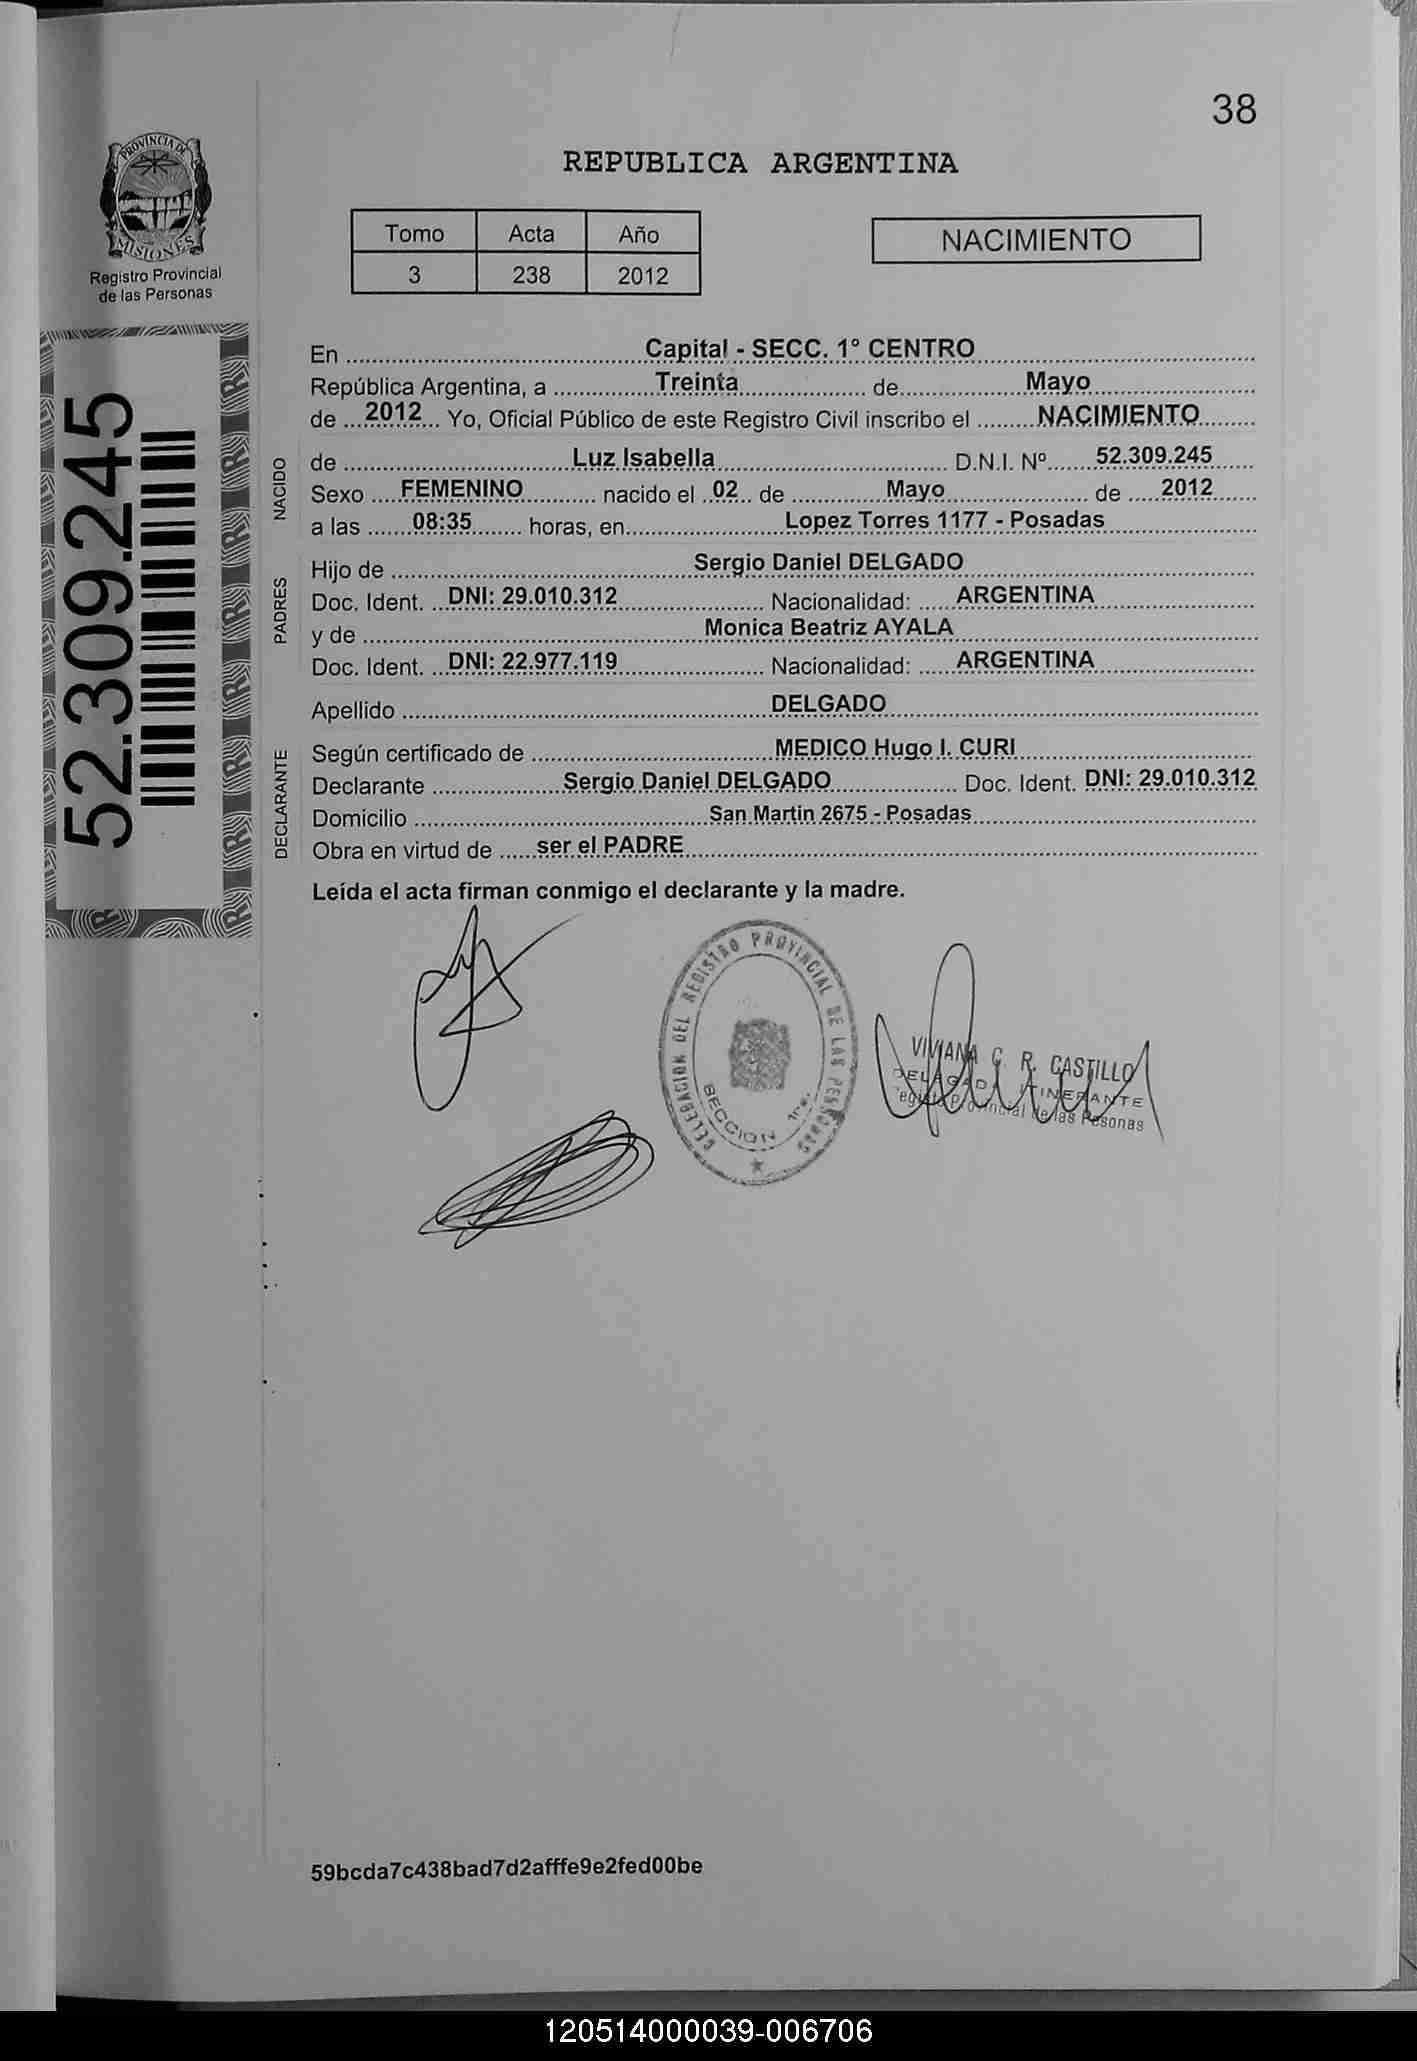 38
PROVINCIA DE
MISIONES
Registro Provincial
de las Personas
REPUBLICA ARGENTINA
Tomo Acta Año
3 238 2012
NACIMIENTO
52.309.245
En Capital - SECC. 1° CENTRO
República Argentina, a Treinta de Mayo
de 2012 Yo, Oficial Público de este Registro Civil inscribo el NACIMIENTO
NACIDO
de Luz Isabella D.N.I. Nº 52.309.245
Sexo FEMENINO nacido el 02 de Mayo de 2012
a las 08:35 horas, en Lopez Torres 1177 - Posadas
PADRES
Hijo de Sergio Daniel DELGADO
Doc. Ident. DNI: 29.010.312 Nacionalidad: ARGENTINA
y de Monica Beatriz AYALA
Doc. Ident. DNI: 22.977.119 Nacionalidad: ARGENTINA
Apellido DELGADO
DECLARANTE
Según certificado de MEDICO Hugo I. CURI
Declarante Sergio Daniel DELGADO Doc. Ident. DNI: 29.010.312
Domicilio San Martin 2675 - Posadas
Obra en virtud de ser el PADRE
Leída el acta firman conmigo el declarante y la madre.
DELEGACION DEL REGISTRO PROVINCIAL DE LAS PERSONAS
SECCION 1ra.
VIVIANA C. R. CASTILLO
DELEGADA ITINERANTE
Registro Provincial de las Pesonas
59bcda7c438bad7d2afffe9e2fed00be
120514000039-006706